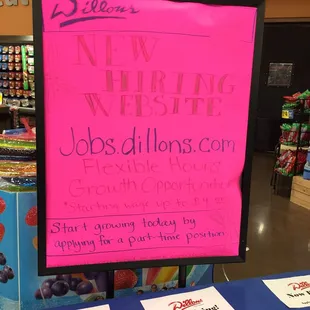 Dillons
NEW
HIRING
WEBSITE
Jobs.dillons.com
Flexible Hours
Growth Opportunities
*Starting wage up to $9
Start growing today by
applying for a part-time position
Dillons
Dillons
Now